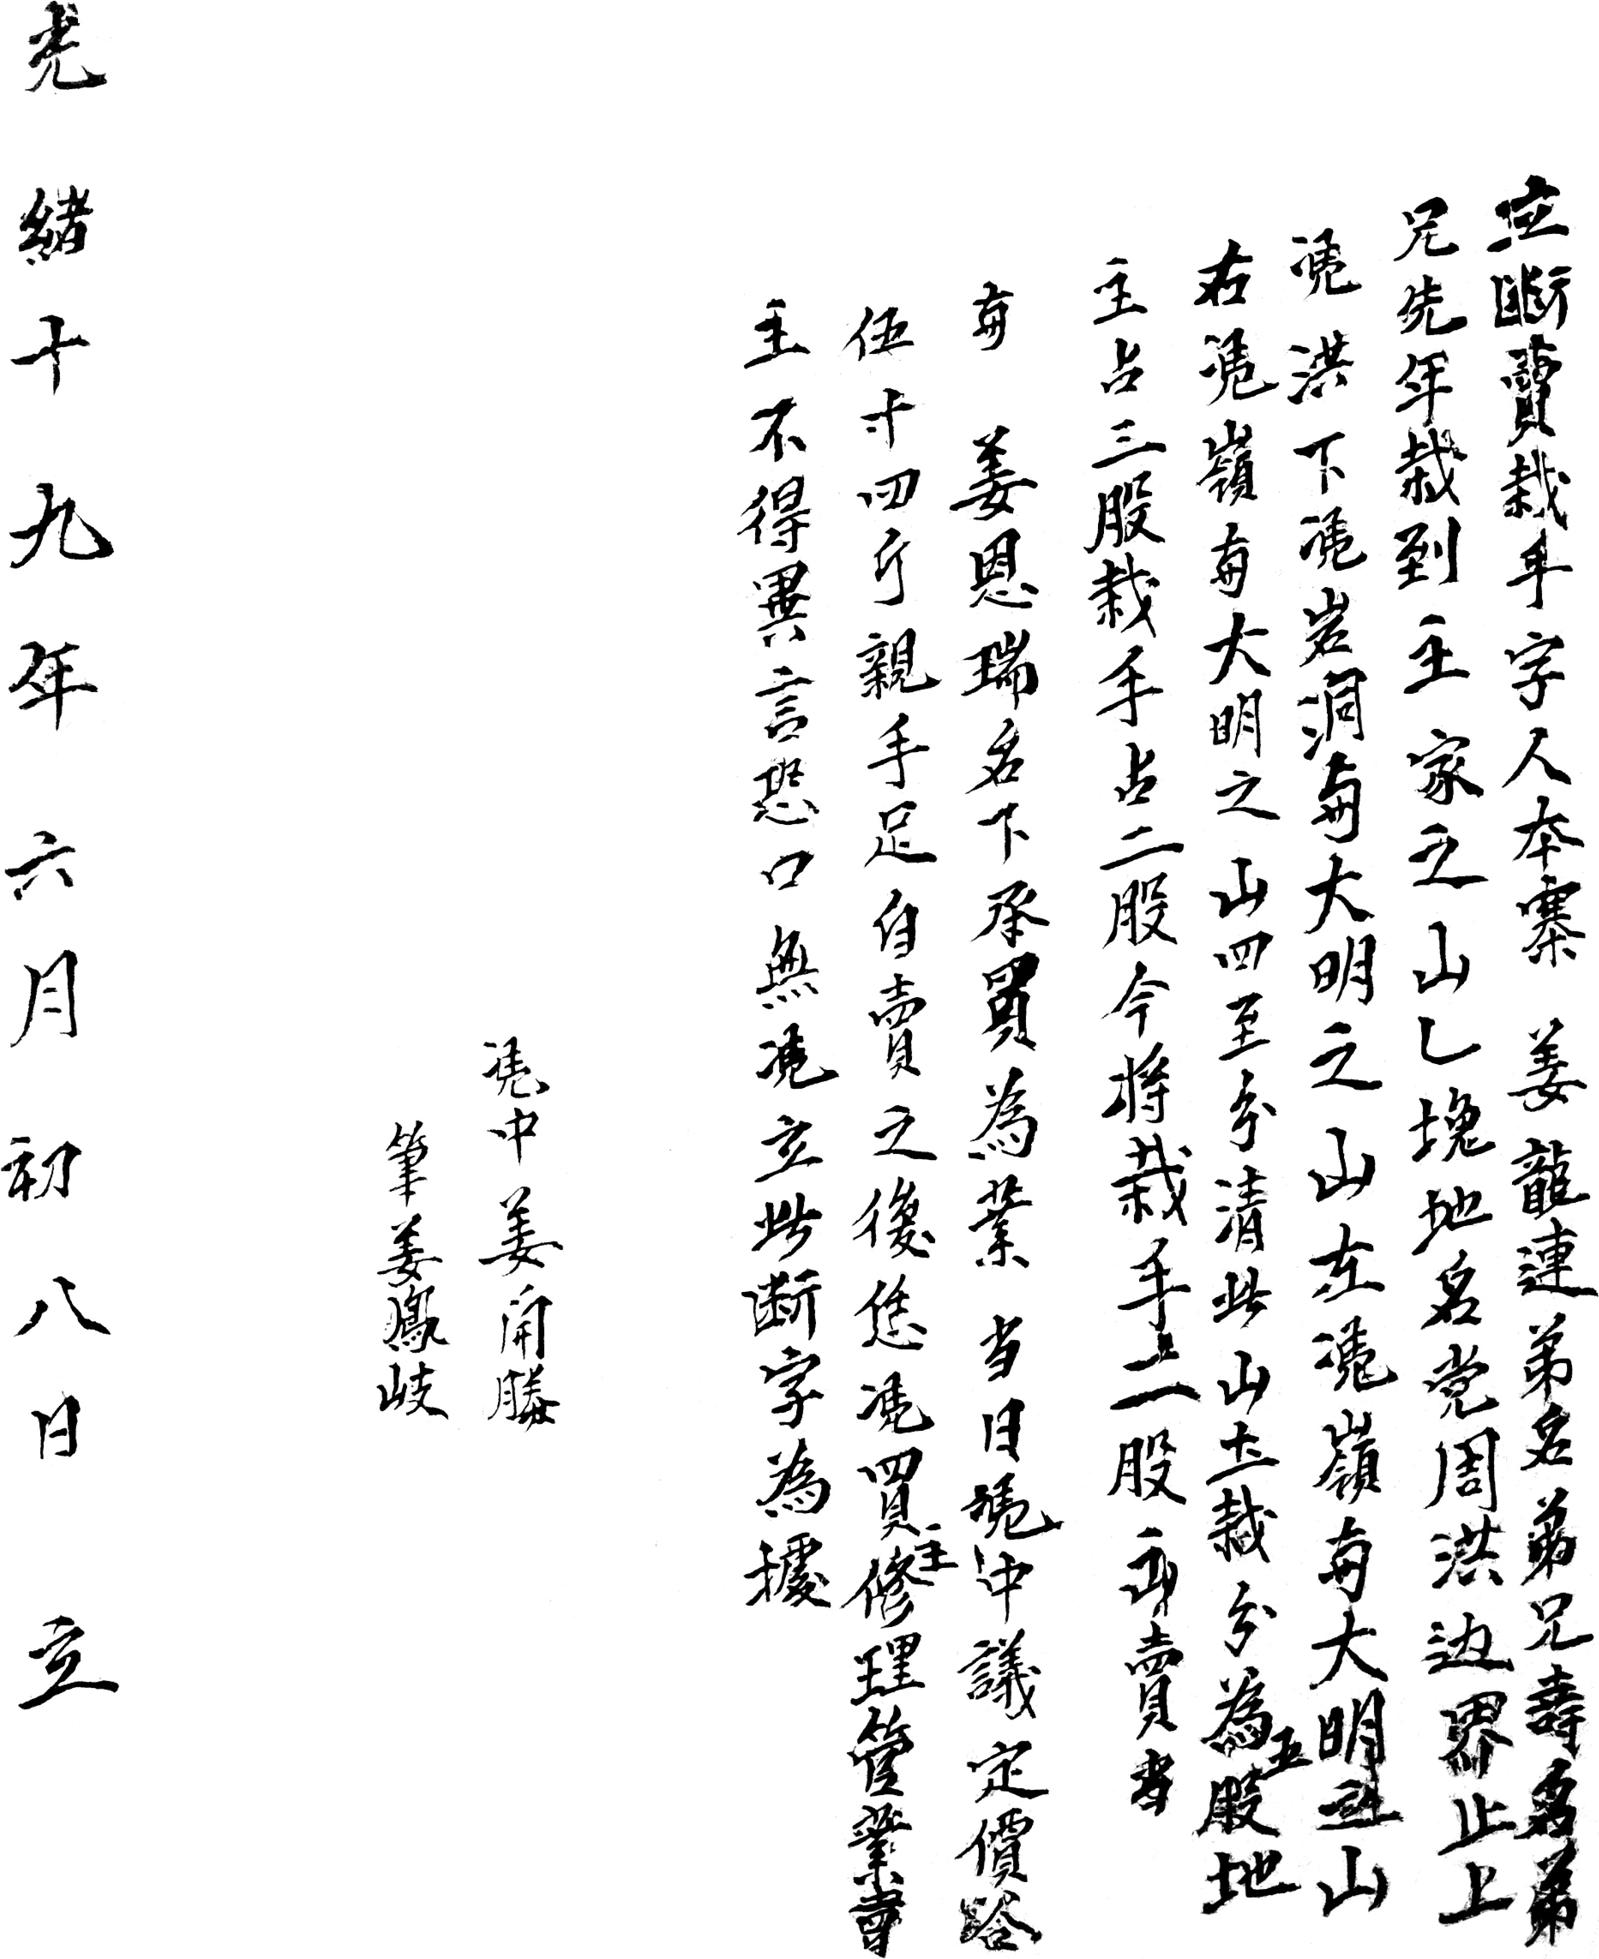 立斷賣栽手字人本寨姜龍連弟名弟兄壽名弟
兄先年栽到主家之山乚塊地名党周洪边界止上
凴洪下凴岩洞與大明之山左凴嶺與大明之山
右凴嶺與大明之山四至分清此山土栽分為五股地
主占三股栽手占二股今將栽手二股出賣
與姜恩瑞名下承買為業当日凴中議定價
伍寸四斤親手足自賣之後恁凴買主修理管業賣
主不得異言恐口無凴立此断字為據
凴中姜開勝
筆姜鳳岐
光緒十九年六月初八日立